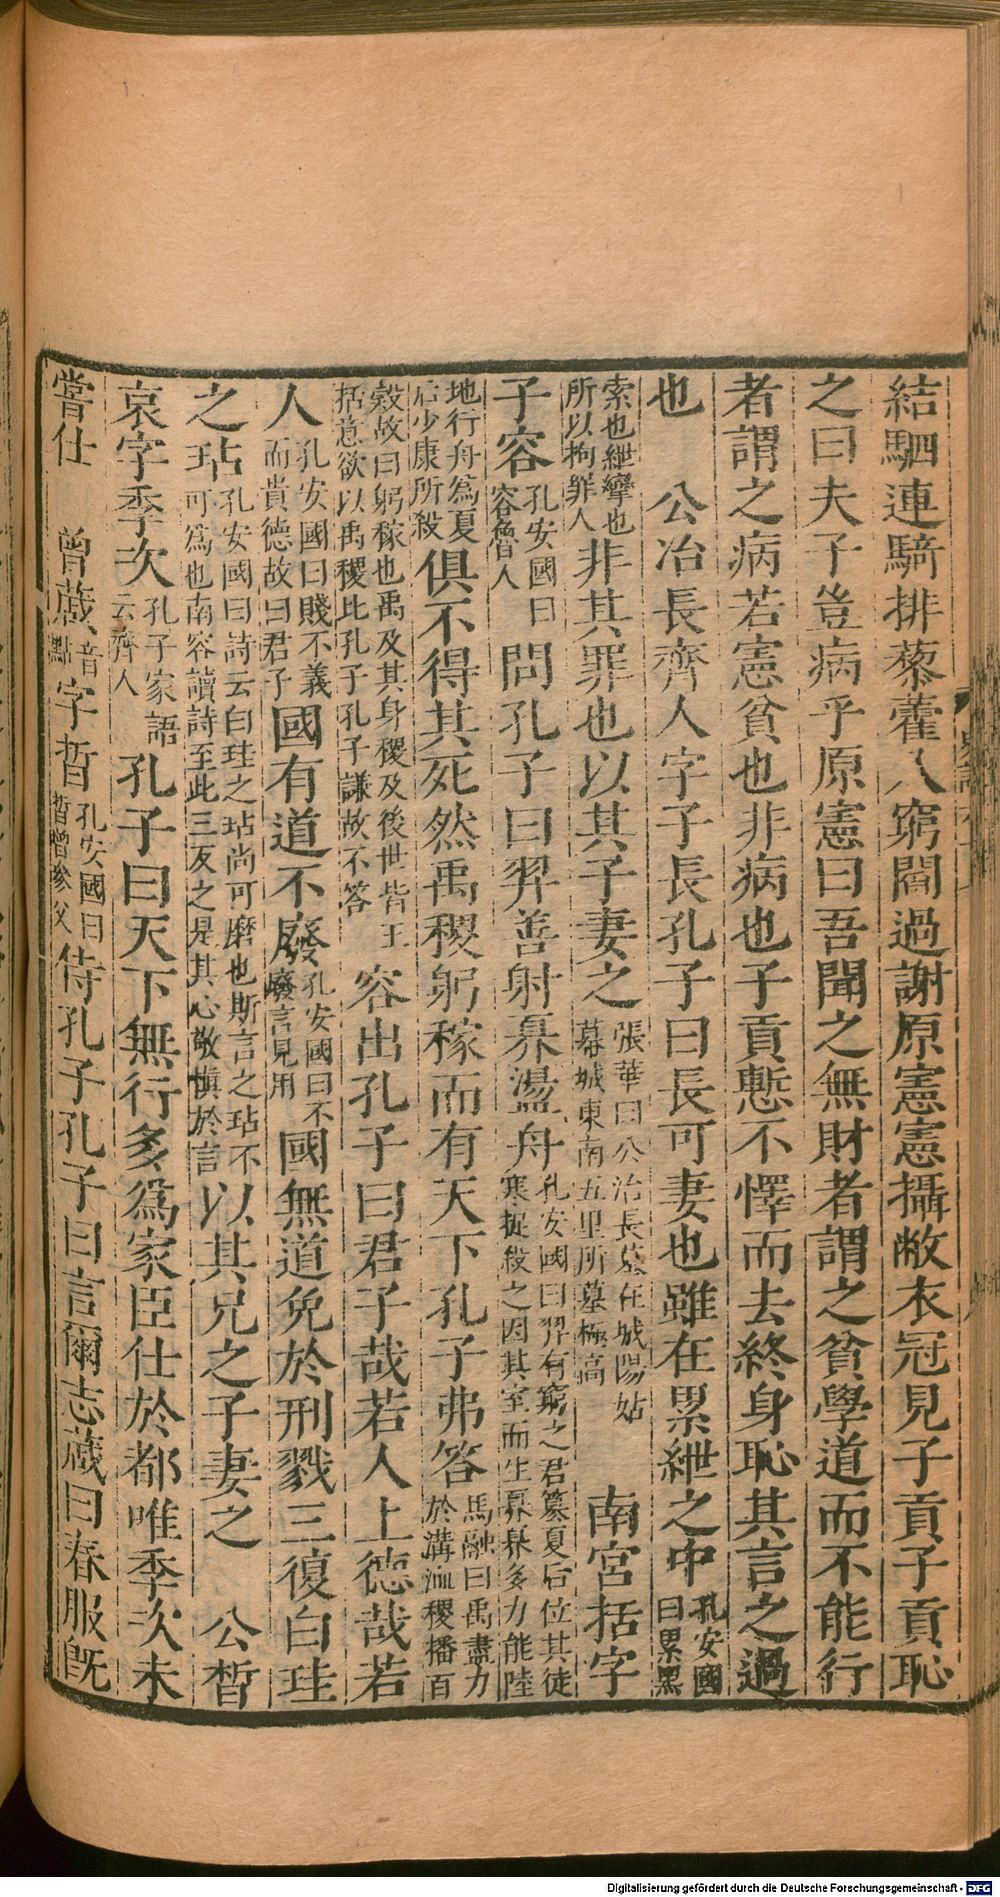 結駟連騎排藜藿入窮閻過謝原憲憲攝敝衣冠見子貢子貢恥
之曰夫子豈病乎原憲曰吾聞之無財者謂之貧學道而不能行
者謂之病若憲貧也非病也子貢慙不懌而去終身恥其言之過
也 公冶長齊人字子長孔子曰長可妻也雖在累紲之中孔安國曰累黑
索也紲攣也所以拘罪人非其罪也以其子妻之張華曰公冶長墓在城陽姑幕城東南五里所墓極高 南宮括字
子容孔安國曰容魯人問孔子曰羿善射奡盪舟孔安國曰羿有窮之君簒夏后位其徒寒浞殺之因其室而生奡奡多力能陸
地行舟為夏后少康所殺俱不得其死然禹稷躬稼而有天下孔子弗答馬融曰禹盡力於溝洫稷播百
穀故曰躬稼也禹及其身稷及後世皆王括意欲以禹稷比孔子孔子謙故不答 容出孔子曰君子哉若人上德哉若
人孔安國曰賤不義而貴德故曰君子國有道不廢孔安國曰不廢言見用國無道免於刑戮三復白珪
之玷孔安國曰詩云白珪之玷尚可磨也斯言之玷不可為也南容讀詩至此三反之是其心敬慎於言以其兄之子妻之 公晳
哀字季次孔子家語云齊人孔子曰天下無行多為家臣仕於都唯季次未
嘗仕 曾蒧音點字晳孔安國曰晳曾參父侍孔子孔子曰言爾志蒧曰春服既
Digitalisierung gefördert durch die Deutsche Forschungsgemeinschaft - DFG